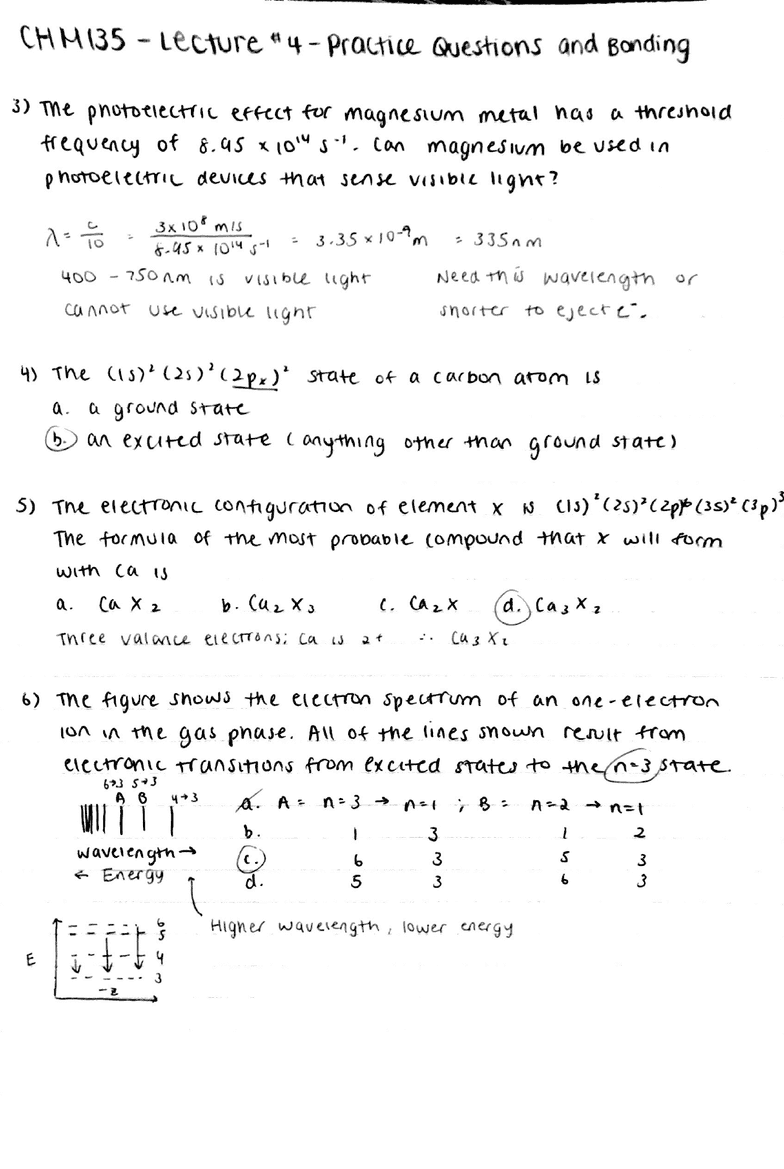 CHM135 - Lecture #4 - Practice Questions and Bonding
3) The photoelectric effect for magnesium metal has a threshold
frequency of 8.95 x 10¹⁴ s⁻¹. Can magnesium be used in
photoelectric devices that sense visible light?
λ = c/10 = 3x10⁸ m/s / 8.95 x 10¹⁴ s⁻¹ = 3.35 x 10⁻⁹ m = 335nm
400 - 750nm is visible light Need this wavelength or
cannot use visible light shorter to eject e⁻.
4) The (1s)² (2s)² (2pₓ)² state of a carbon atom is
a. a ground state
b. an excited state (anything other than ground state)
5) The electronic configuration of element x is (1s)²(2s)²(2p)⁶(3s)²(3p)³
The formula of the most probable compound that x will form
with Ca is
a. Ca X₂ b. Ca₂ X₃ c. Ca₂X d. Ca₃X₂
Three valance electrons; Ca is 2+ ∴ Ca₃X₂
6) The figure shows the electron spectrum of an one-electron
ion in the gas phase. All of the lines shown result from
electronic transitions from excited states to the n=3 state.
6→3 5→3
A B 4→3 a. A = n=3 → n=1 ; B = n=2 → n=1
b. 1 3 1 2
wavelength → c. 6 3 5 3
← Energy d. 5 3 6 3
Higher wavelength, lower energy
6
5
E 4
3
-2